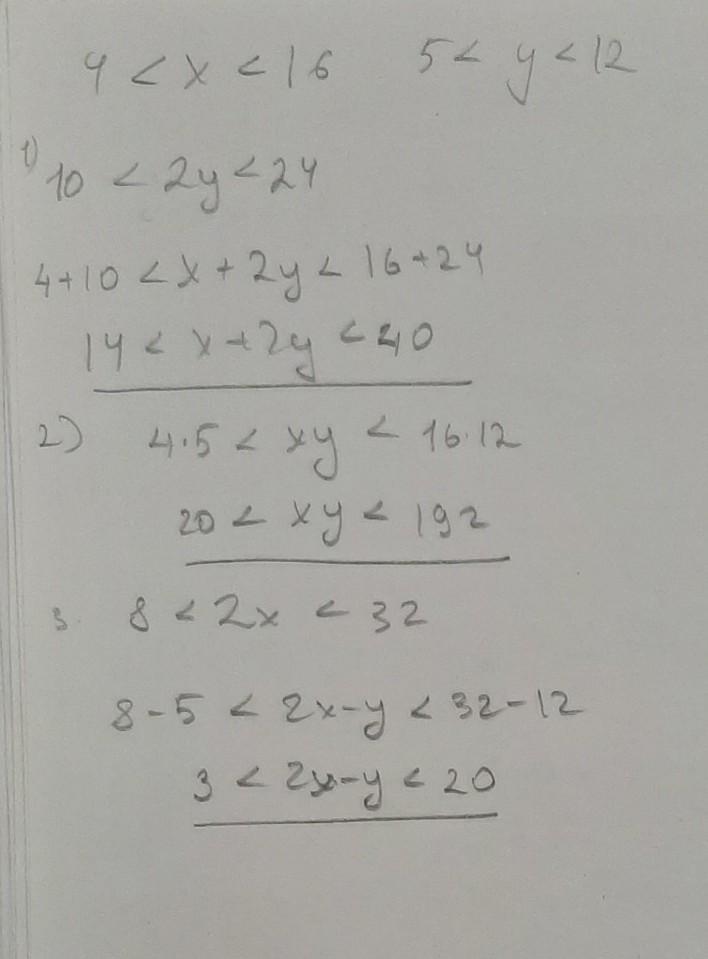 4 < x < 16 5 < y < 12
1) 10 < 2y < 24
4+10 < x + 2y < 16+24
14 < x+2y < 40
2) 4·5 < xy < 16·12
20 < xy < 192
3. 8 < 2x < 32
8-5 < 2x-y < 32-12
3 < 2x-y < 20